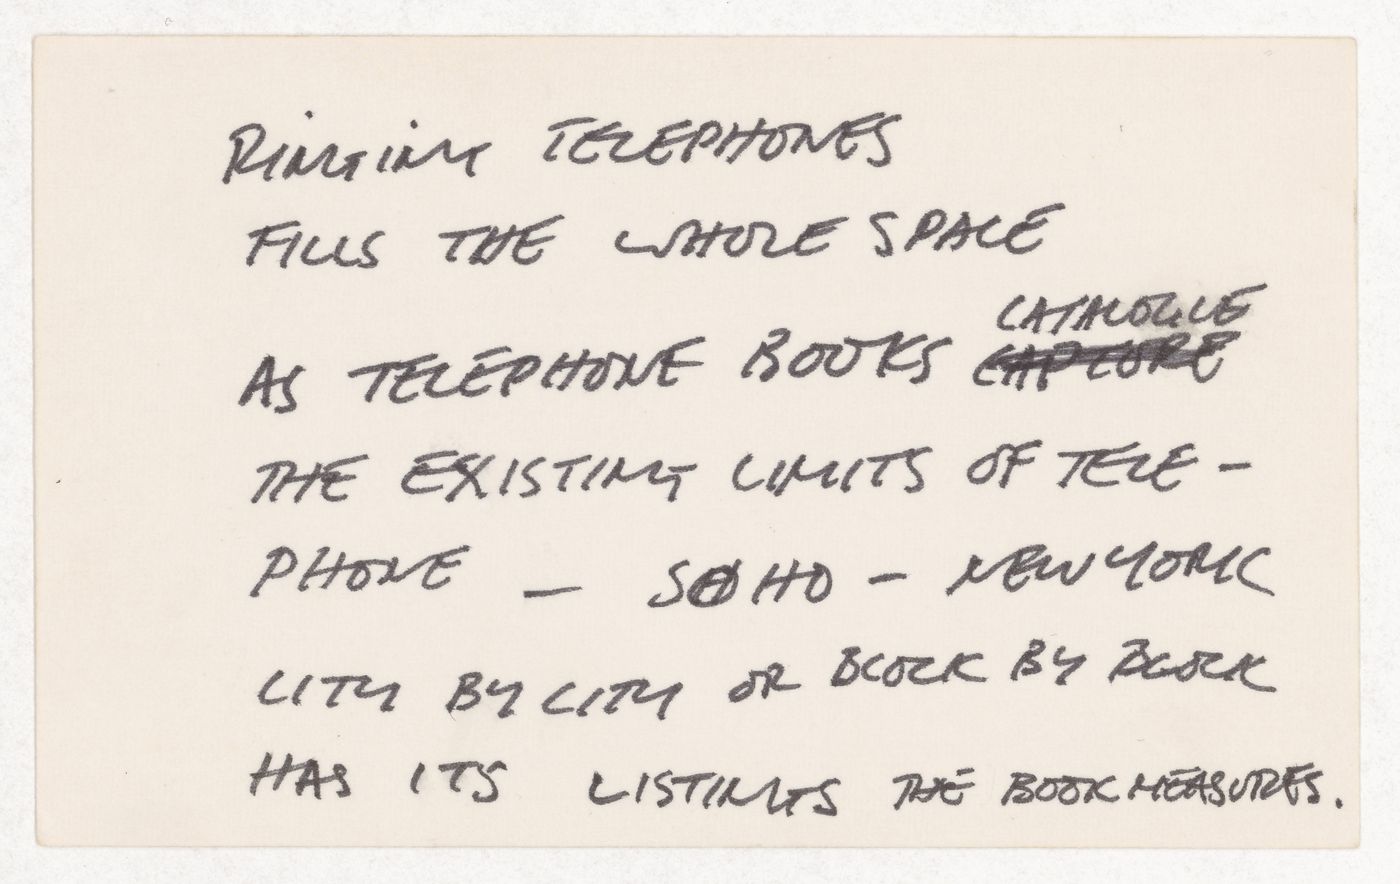 RINGING TELEPHONES
FILLS THE WHOLE SPACE
AS TELEPHONE BOOKS CATALOGUE
CAPTURE
THE EXISTING LIMITS OF TELE-
PHONE — SOHO — NEW YORK
CITY BY CITY OR BLOCK BY BLOCK
HAS ITS LISTINGS THE BOOK MEASURES.